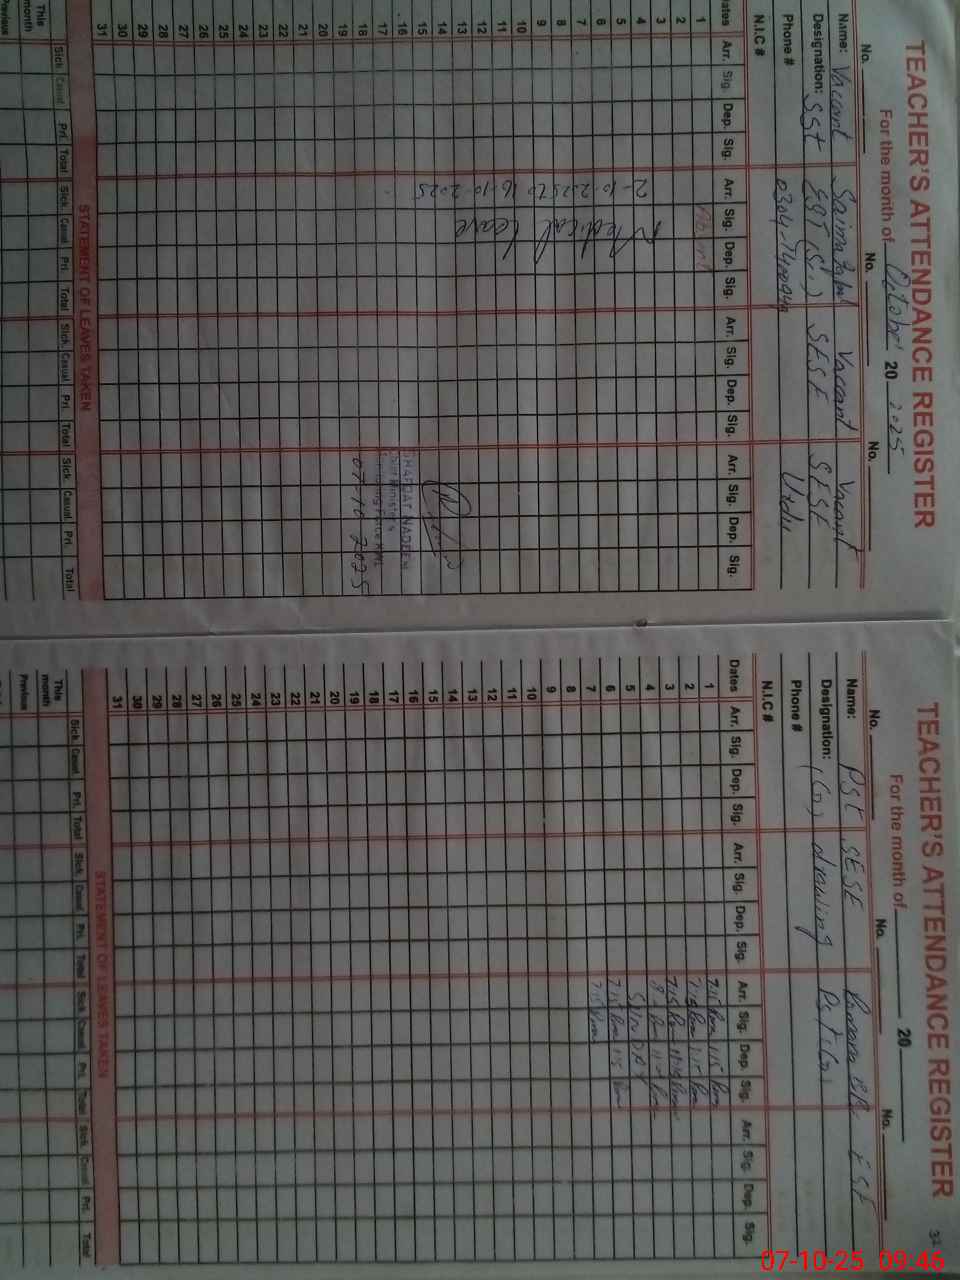 TEACHER'S ATTENDANCE REGISTER
For the month of October 20 2025
No. No. No.
Name: Vaccant Saima Vaccant Vaccant
Designation: SST EST (Sc) SESE SESE
Phone # Urdu
N.I.C #
Dates Arr. Sig. Dep. Sig. Arr. Sig. Dep. Sig. Arr. Sig. Dep. Sig. Arr. Sig. Dep. Sig.
1 Absent
2
3
4
5
6
7
8
9
10
11
12
13
14
15
16
17
18
19
20
21
22
23
24
25
26
27
28
29
30
31
Medical Leave
2-10-2025 to 16-10-2025
SHAFQAT NADEEM
Chief Minister's
Monitoring Force
07-10-2025
STATEMENT OF LEAVES TAKEN
Sick. Casual Pri. Total Sick. Casual Pri. Total Sick. Casual Pri. Total Sick. Casual. Pri. Total
This month
Previous
TEACHER'S ATTENDANCE REGISTER
32
For the month of 20
No. No. No.
Name: PST SESE EST
Designation: (G) drawing PST (G)
Phone #
N.I.C #
Dates Arr. Sig. Dep. Sig. Arr. Sig. Dep. Sig. Arr. Sig. Dep. Sig. Arr. Sig. Dep. Sig.
1 7:15 1:15
2 7:15 1:15
3 7:15
4 8
5 SUNDAY
6 7:15 1:15
7 7:15
8
9
10
11
12
13
14
15
16
17
18
19
20
21
22
23
24
25
26
27
28
29
30
31
STATEMENT OF LEAVES TAKEN
Sick. Casual Pri. Total Sick. Casual Pri. Total Sick. Casual Pri. Total Sick. Casual Pri. Total
This month
Previous
07-10-25 09:46